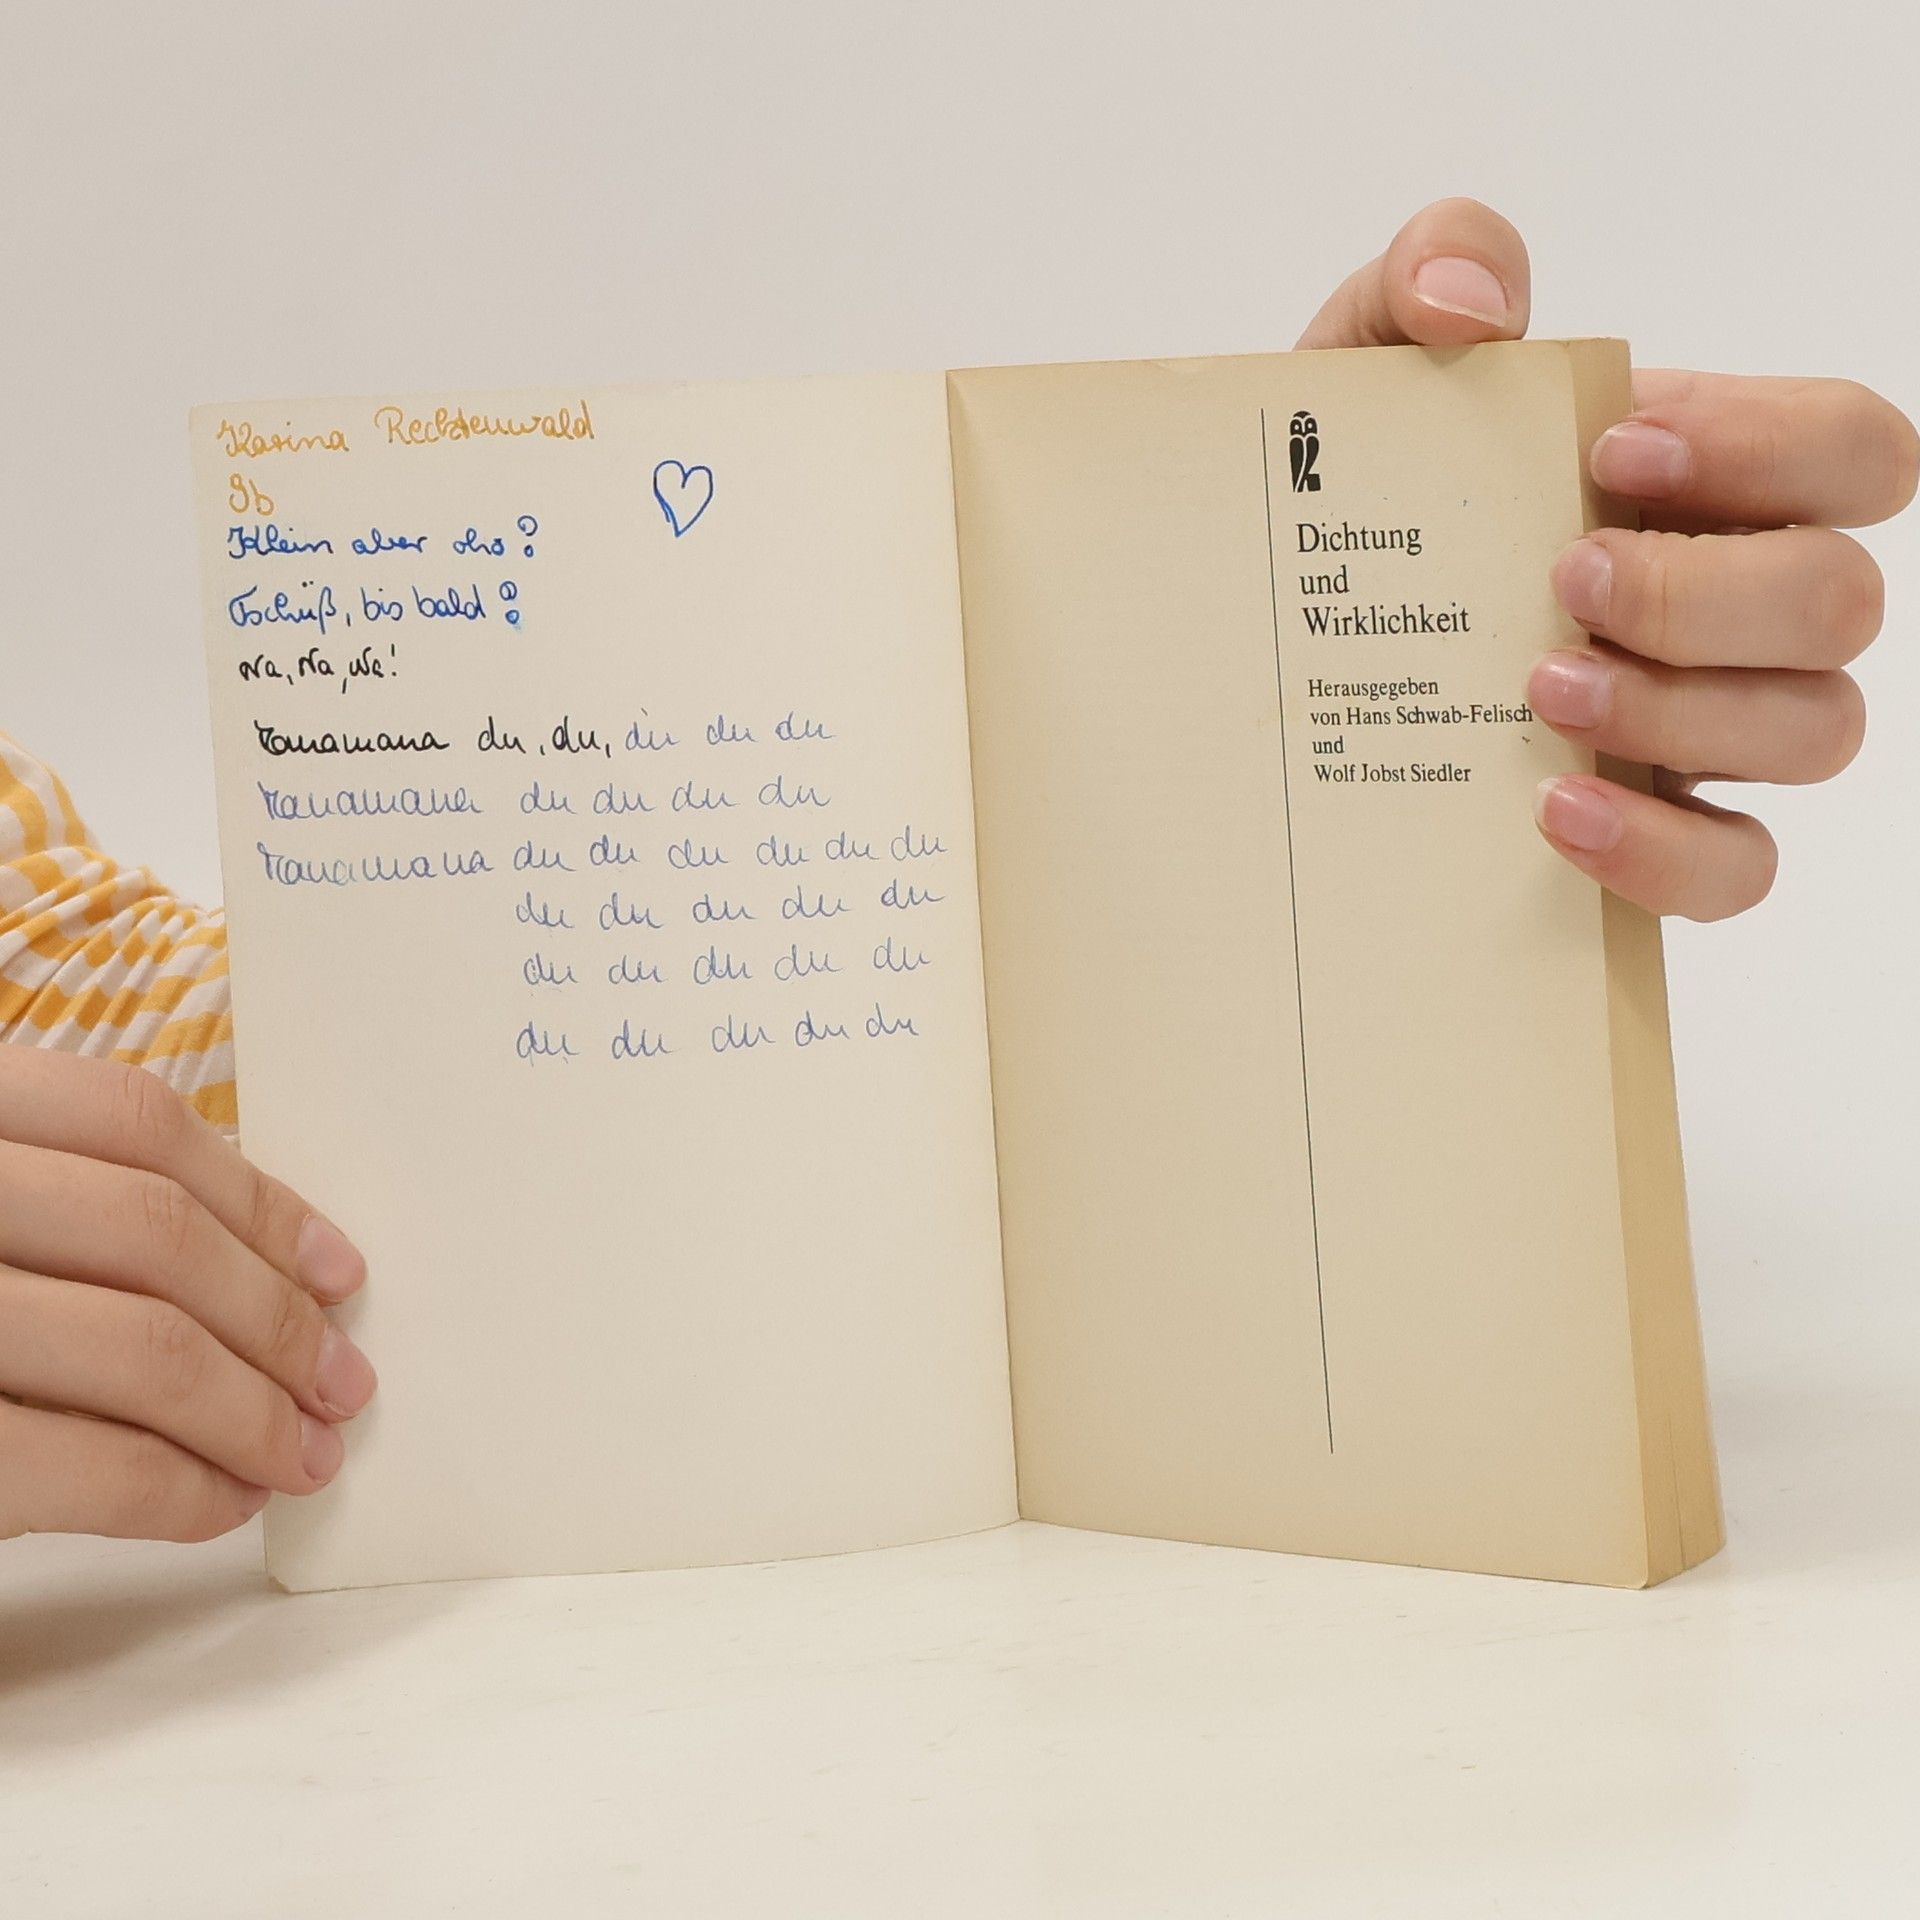 Karina Rechtenwald
9b
Klein aber oho!
Tschüß, bis bald!
Na, Na, Na!
Manamana du, du, du du du
Manamana du du du du
Manamana du du du du du du
du du du du du
du du du du du
du du du du du
Dichtung
und
Wirklichkeit
Herausgegeben
von Hans Schwab-Felisch
und
Wolf Jobst Siedler